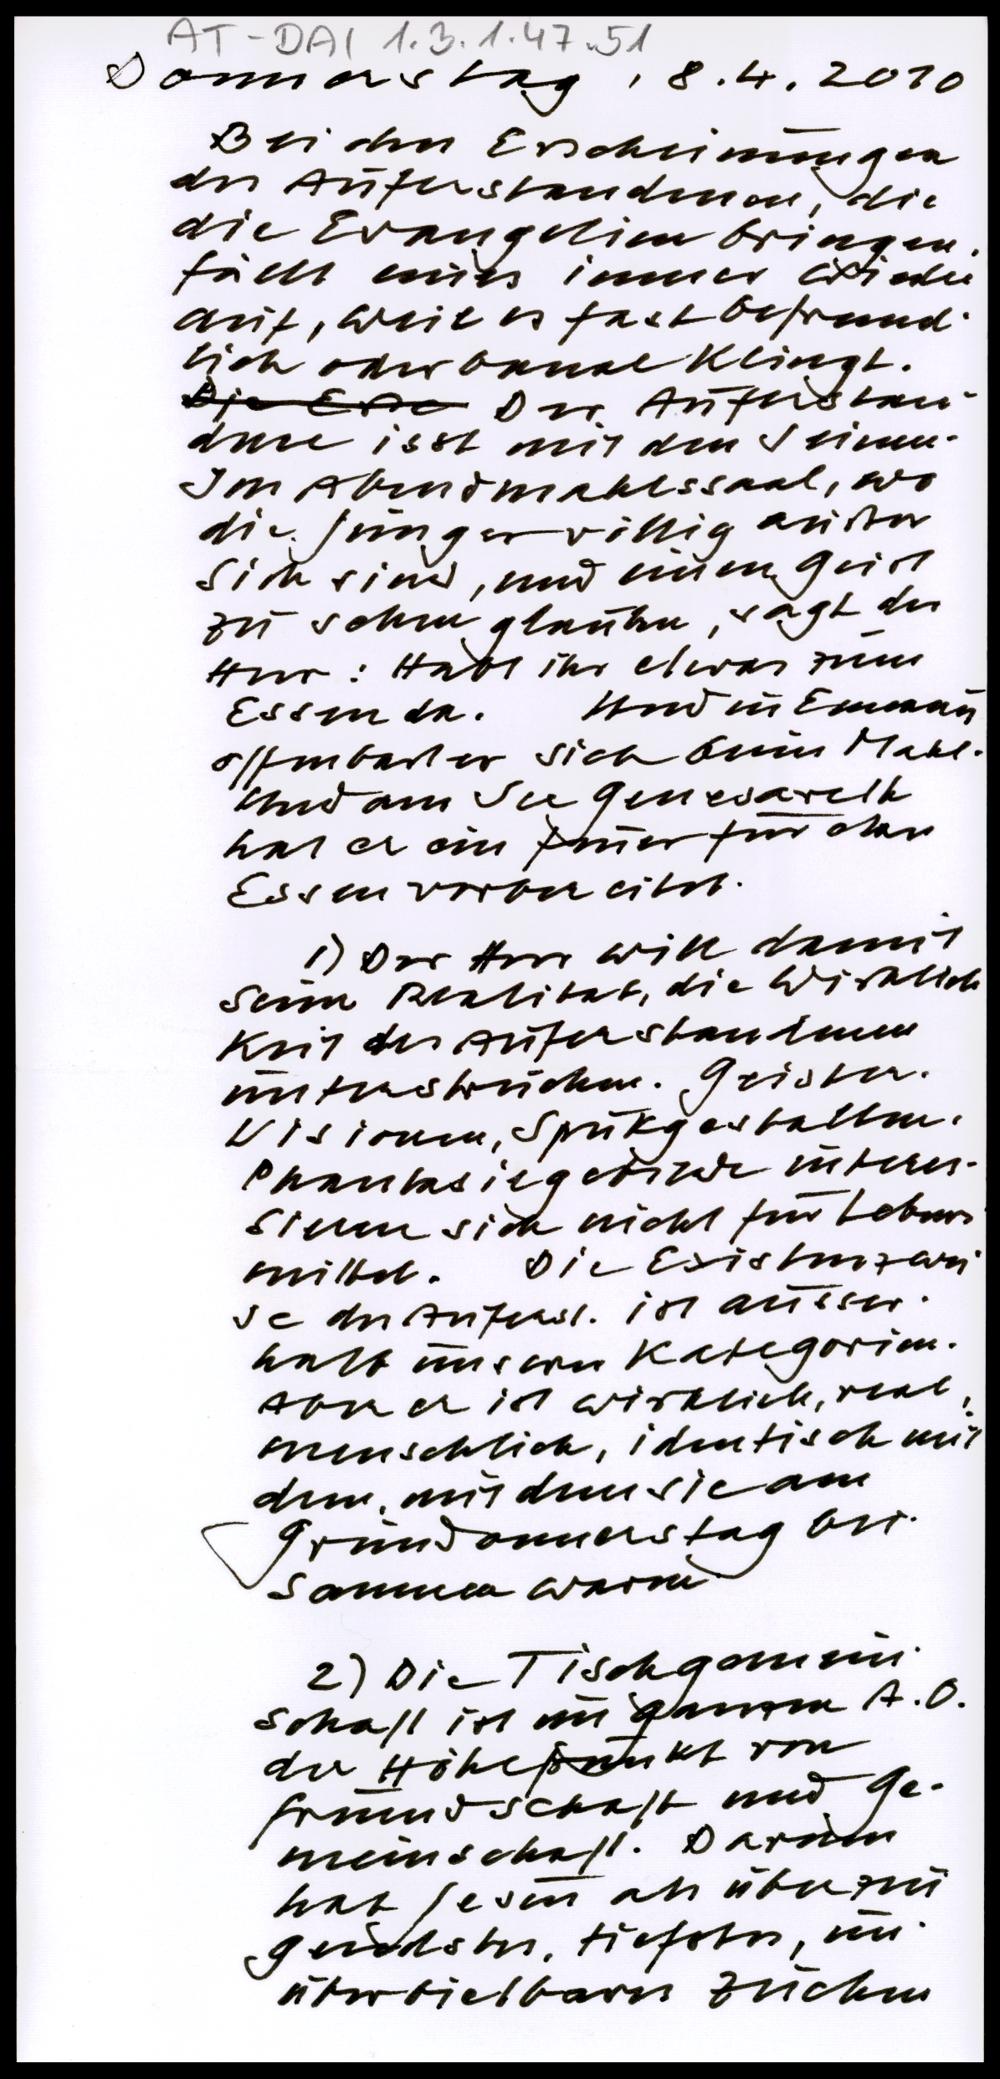 AT-DAI 1.3.1.47.51
Donnerstag, 8.4.2010
Bei den Erscheinungen
des Auferstandenen, die
die Evangelien bringen,
fällt eines immer wieder
auf, weil es fast befremd-
lich oder banal klingt.
Der Auferstan-
dene isst mit den Seinen.
Im Abendmahlssaal, wo
die Jünger völlig außer
sich sind, und einen Geist
zu sehen glauben, sagt der
Herr: Habt ihr etwas zum
Essen da. Und in Emmaus
offenbart er sich beim Mahl.
Und am See Genesareth
hat er ein Feuer für das
Essen vorbereitet.
1) Der Herr will damit
seine Realität, die Wirklich
keit des Auferstandenen
unterstreichen. Geister,
Visionen, Spukgestalten,
Phantasiegebilde interes-
sieren sich nicht für Lebens
mittel. Die Existenzwei
se des Auferst. ist ausser-
halb unseren Kategorien.
Aber er ist wirklich, real,
menschlich, identisch mit
dem, mit dem sie am
Gründonnerstag bei-
sammen waren
2) Die Tischgemein-
schaft ist im ganzen A.O.
der Höhepunkt von
Freundschaft und Ge-
meinschaft. Darum
hat Jesus als überzeu
gendstes, tiefstes, un-
überbietbares Zeichen